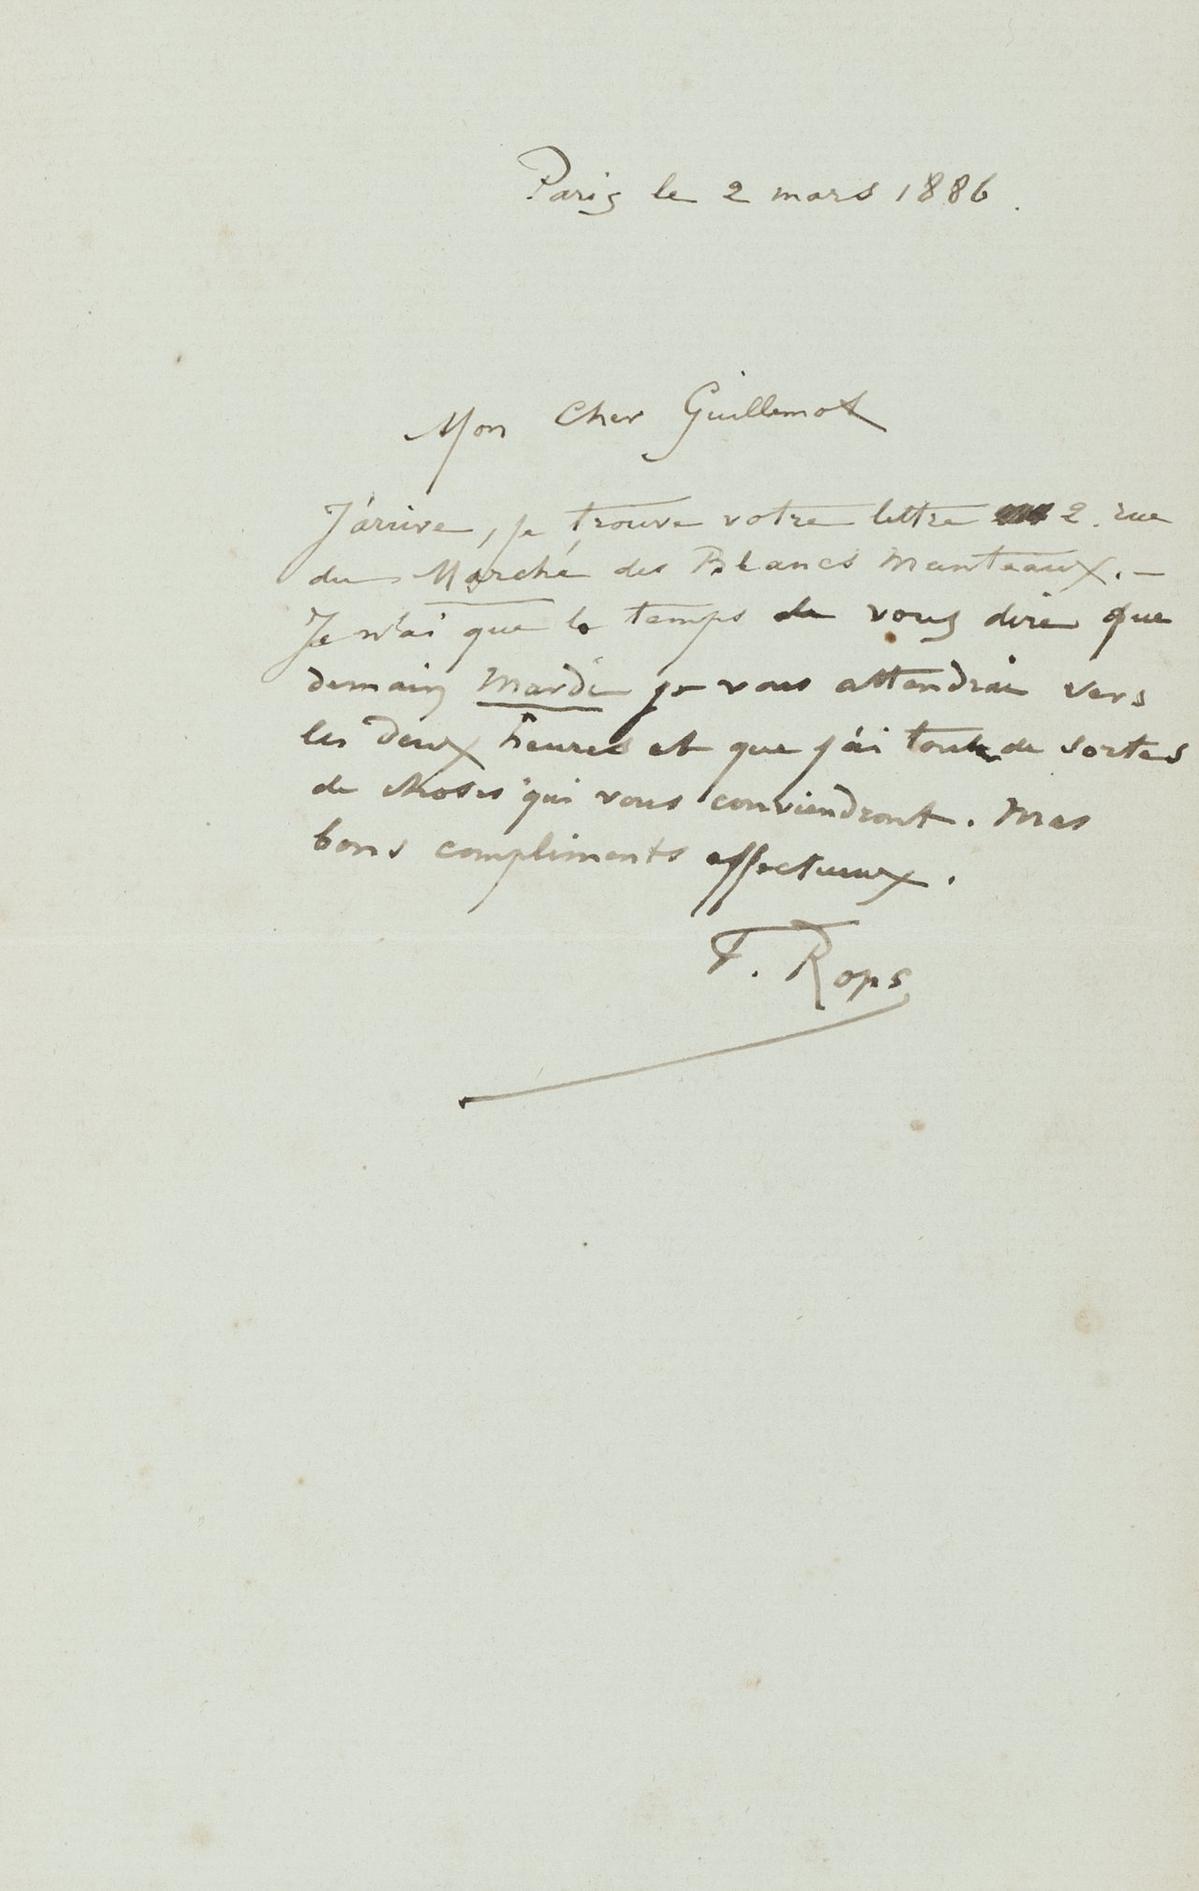 Paris le 2 mars 1886.
Mon Cher Guillemot
J'arrive, je trouve votre lettre 2. rue
du Marché des Blancs Manteaux. –
Je n'ai que le temps de vous dire que
demain Mardi je vous attendrai vers
les deux heures et que j'ai toute de sortes
de choses qui vous conviendront. Mes
bons compliments affectueux.
F. Rops